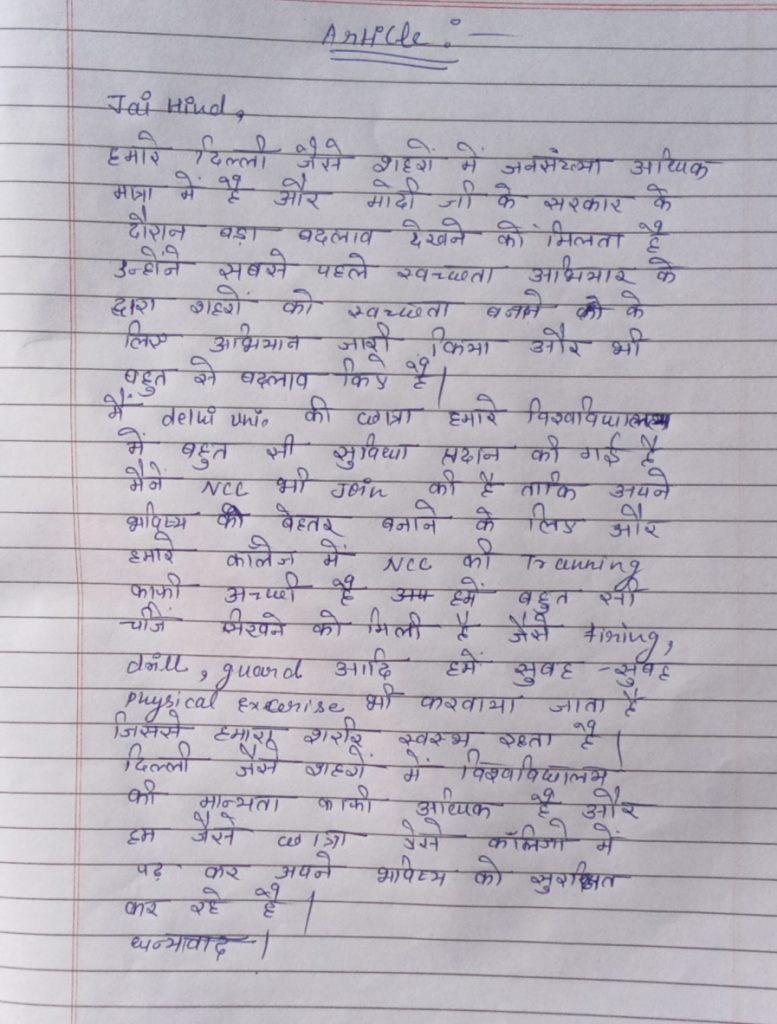 Article :-
Jai Hind,
हमारे दिल्ली जैसे शहरों में जनसंख्या अधिक
मात्रा में है और मोदी जी के सरकार के
दौरान बड़ा बदलाव देखने को मिलता है
उन्होंने सबसे पहले स्वच्छता अभियार के
द्वारा शहरों को स्वच्छता बनने के
लिए अभियान जारी किया और भी
बहुत से बदलाव किए है|
मैं delhi uni. की छात्रा हमारे विश्वविधालय
में बहुत सी सुविधा प्रदान की गई है
मैनें NCC भी Join की है ताकि अपने
भविष्य को बेहतर बनाने के लिए और
हमारे कॉलेज में NCC की Trainning
काफी अच्छी है हमें बहुत सी
चीजें सिखने को मिली है जैसे firing,
drill, guard आदि हमें सुबह - सुबह
Physical Excerise भी करवाया जाता है
जिससे हमारा शरीर स्वस्थ रहता है|
दिल्ली जैसे शहरों में विश्वविधालय
की मान्यता काफी अधिक है और
हम जैसे छात्रा ऐसे कॉलेजो में
पढ़ कर अपने भविष्य को सुरक्षित
कर रहे है|
धन्यावाद-|